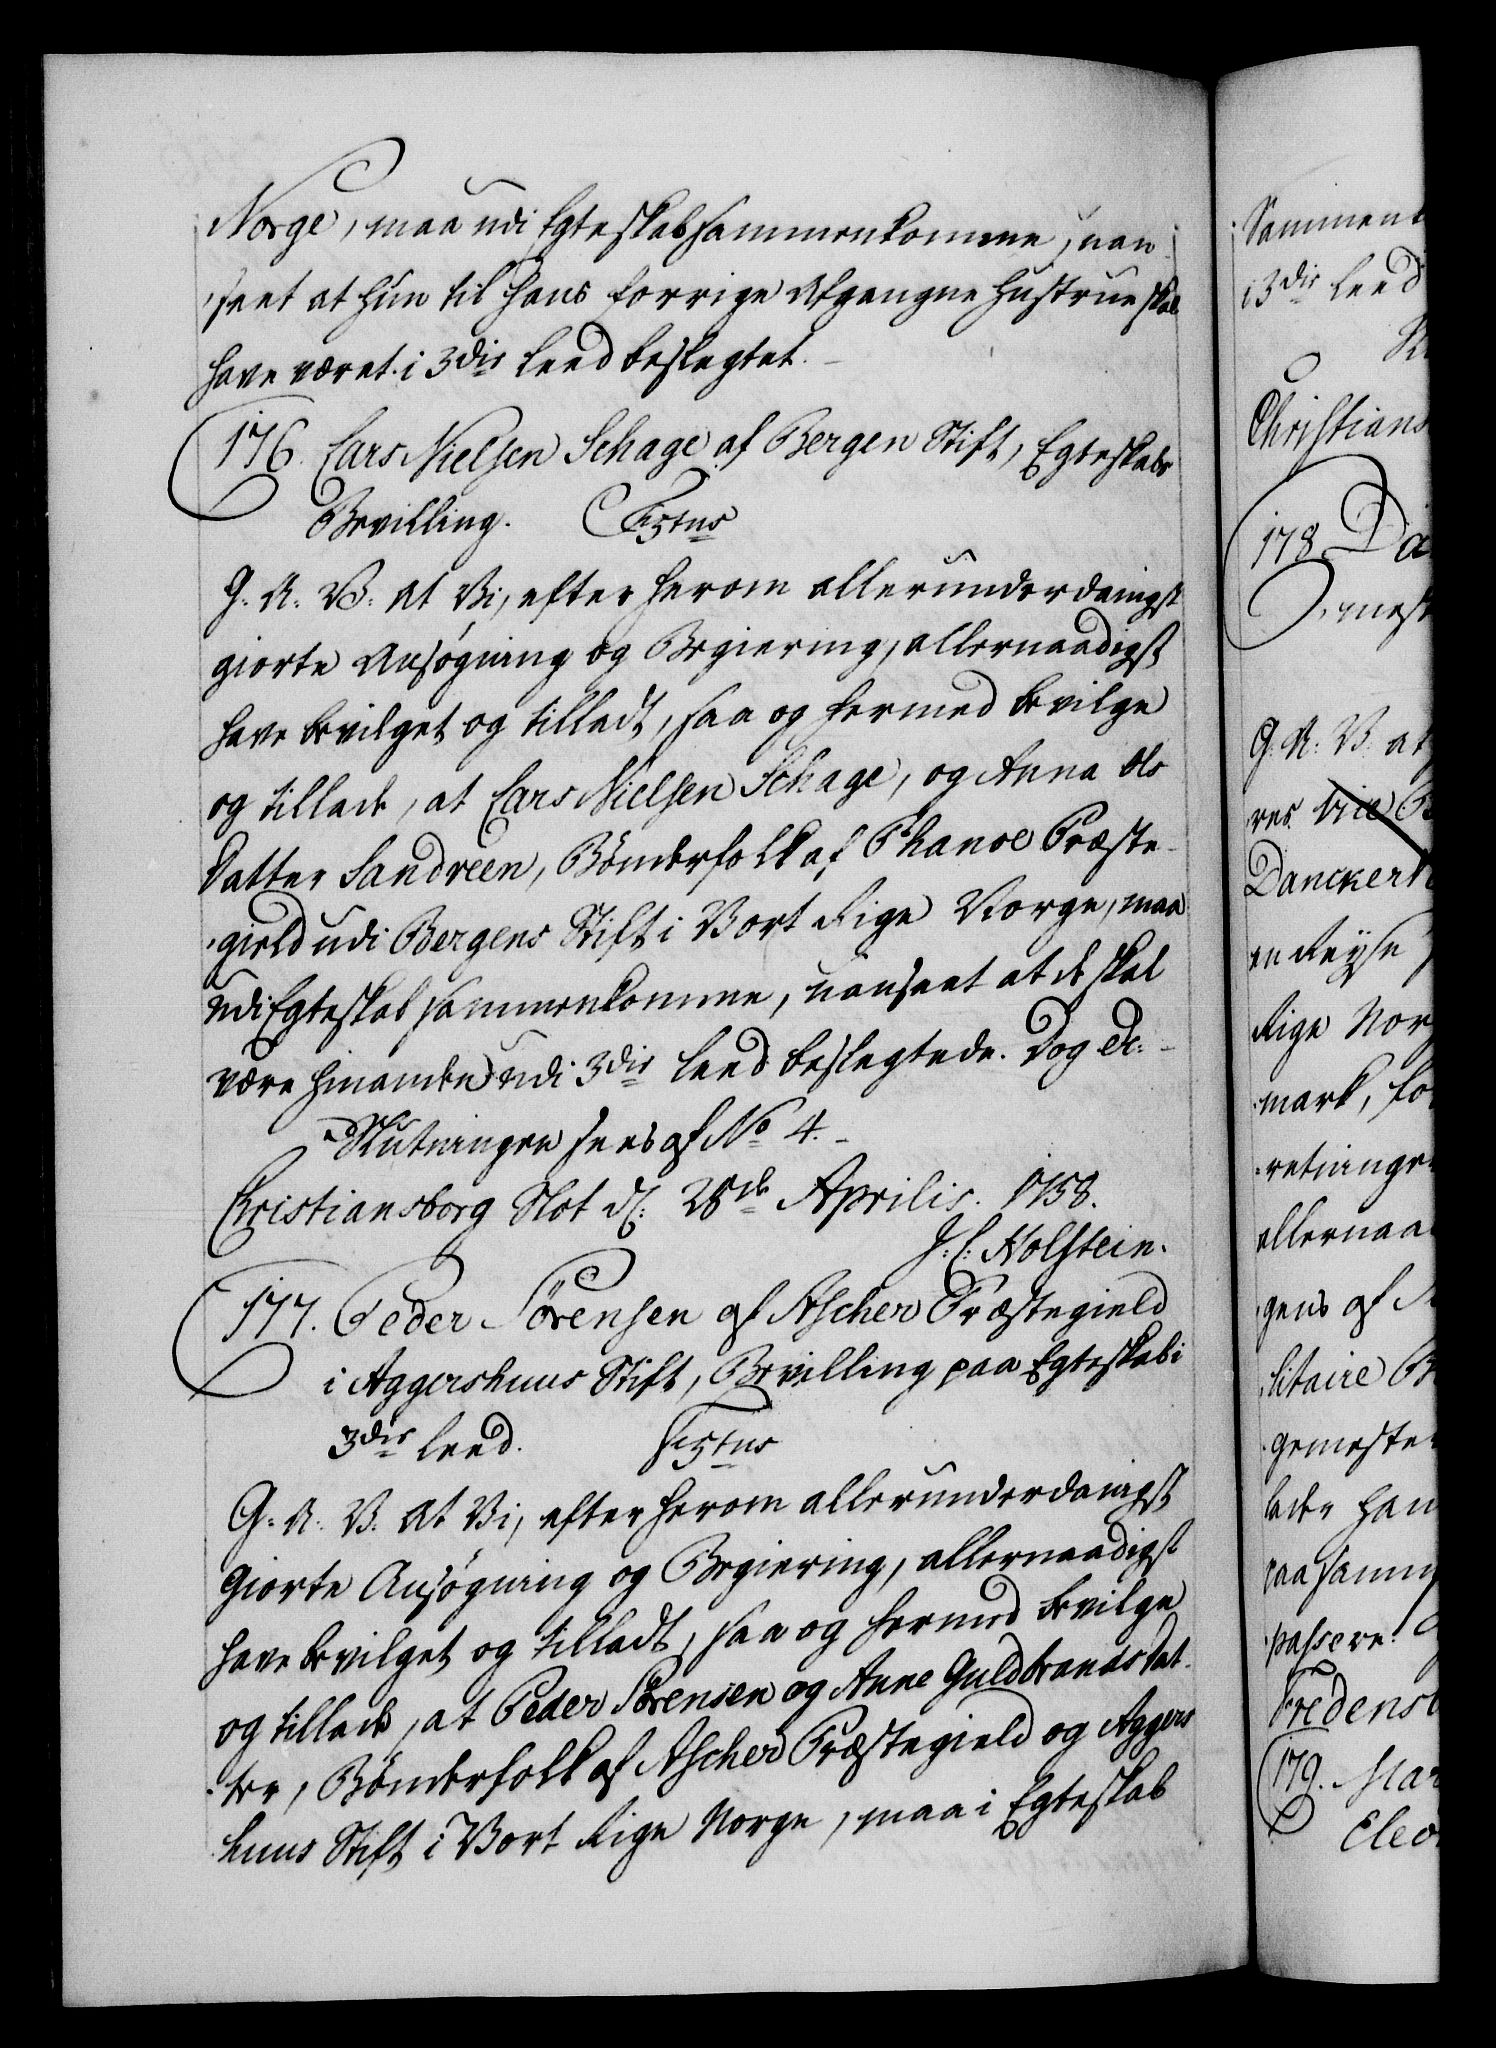 Norge, maa udi Egteskab sammenkomme, uan-
seet at hun til hans forrige afgangne Hustrue skal
have været i 3die Leed beslegtet.
176. Lars Nielsen Schage af Bergen Stift, Egteskabs
Bevilling. F5tus
G. A: V: at Vi, efter herom allerunderdanigst
giorte Ansøgning og Begiering, allernaadigst
have bevilget og tilladt, saa og hermed bevilge
og tillade, at Lars Nielsen Schage, og Anna Ols
Datter Sandreen, Bønderfolk af Phanoe Præste-
gield udi Bergens Stift i Vort Rige Norge, maa
udi Egteskab sammenkomme, uanseet at de skal
være hinanden udi 3die Leed beslegtede. Dog etc:
Slutningen sees af No 4.
Christiansborg Slot d: 28de Aprilis. 1758.
J. L: Holstein.
177. Peder Sörensen af Ascher Præstegield
i Aggershuus Stift, Bevilling paa Egteskab i
3die Leed. F5tus
G. A: V: at Vi, efter herom allerunderdanigst
giorte Ansøgning og Begiering, allernaadigst
have bevilget og tilladt, saa og hermed bevilge
og tillade, at Peder Sörensen og Anne Guldbrands Dat-
ter, Bønderfolk af Ascher Præstegield og Aggers
huus Stift i Vort Rige Norge, maa i Egteskab
Sammenk
i 3die Leed
Christians
178. Da
G. A: V: at
res. vice
Danckert
en Reyse
Rige Nor
mark, for
retninger
allernaa
gens af
litaire B
gemeste
lade han
paa samm
passere.
Fredensb
179. Mar
Eleo